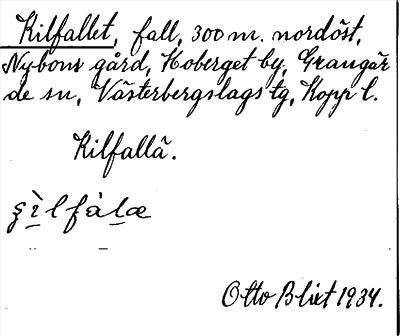 Kilfallet, fall, 300 m. nordöst,
Nybons gård, Hoberget by, Grangär
de sn, Västerbergslags tg, Kopp l.
Kilfallä.
Otto Blixt 1934.